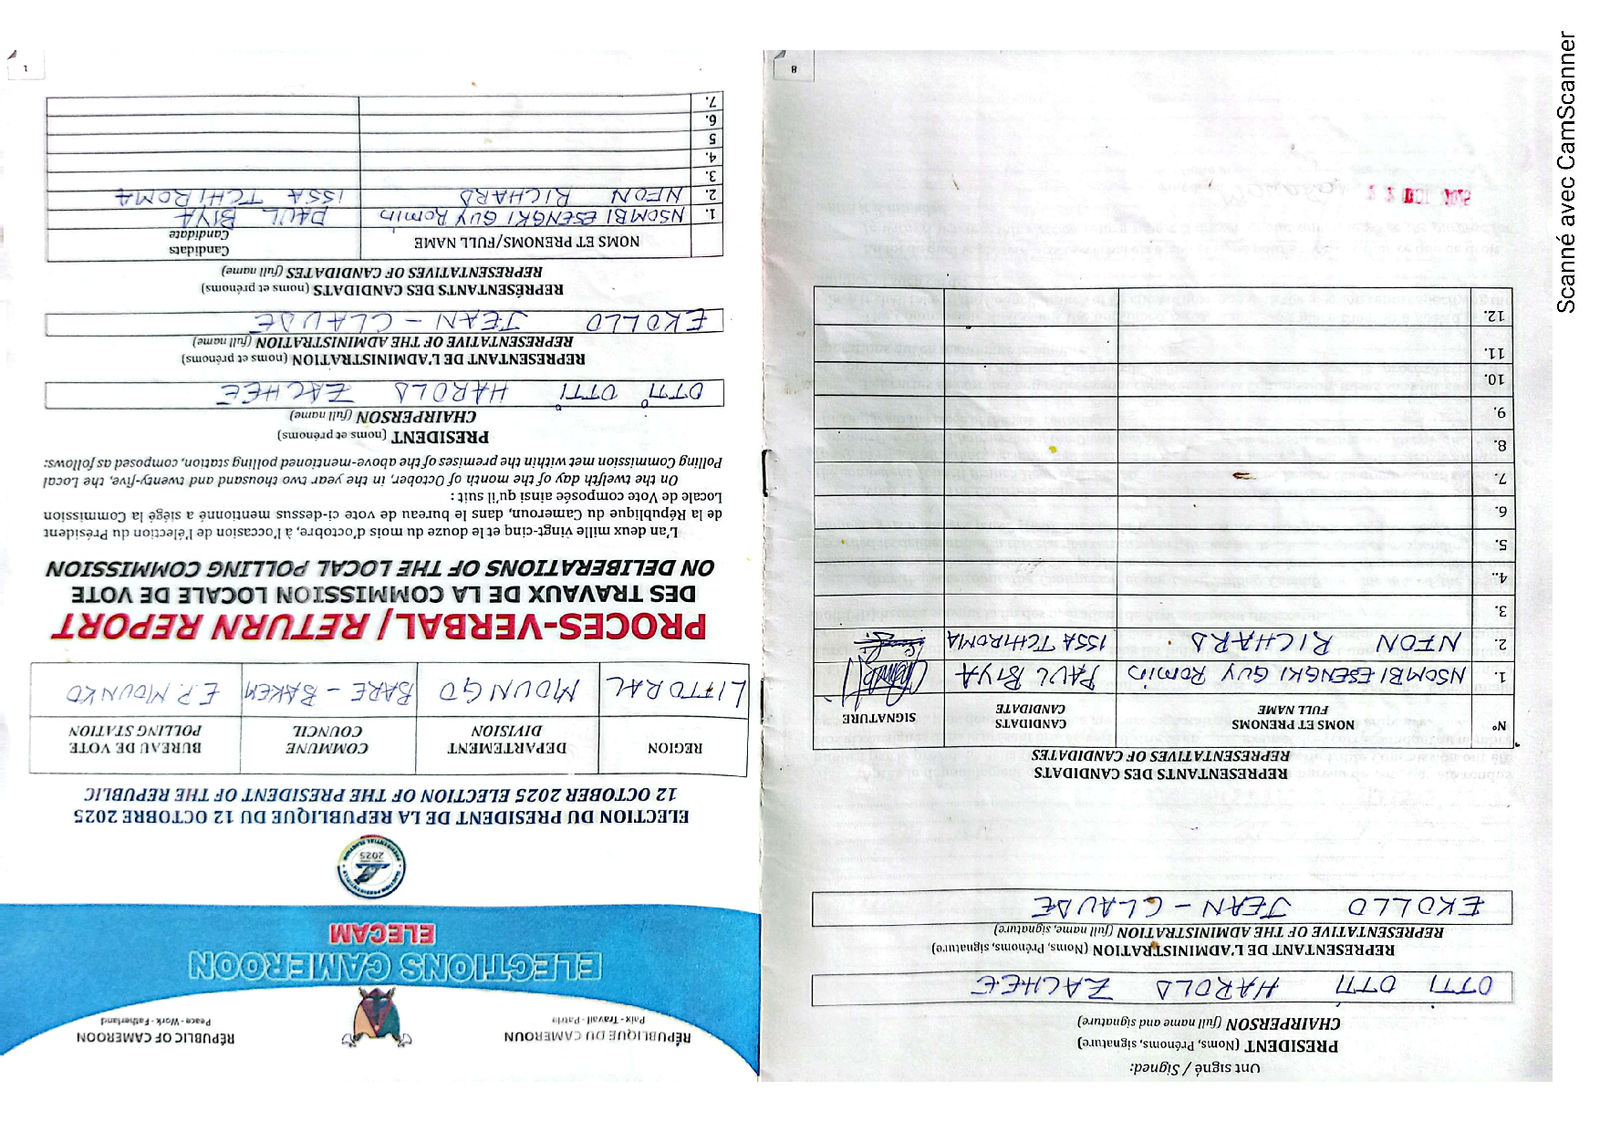 RÉPUBLIQUE DU CAMEROUN
Paix - Travail - Patrie
REPUBLIC OF CAMEROON
Peace - Work - Fatherland
ELECTIONS CAMEROON
ELECAM
2025
ELECTION DU PRESIDENT DE LA REPUBLIQUE DU 12 OCTOBRE 2025
12 OCTOBER 2025 ELECTION OF THE PRESIDENT OF THE REPUBLIC
REGION
DEPARTEMENT
DIVISION
COMMUNE
COUNCIL
BUREAU DE VOTE
POLLING STATION
LITTORAL
MOUNGO
BARE - BAKEM
E.P. MOUNKO
PROCES-VERBAL/ RETURN REPORT
DES TRAVAUX DE LA COMMISSION LOCALE DE VOTE
ON DELIBERATIONS OF THE LOCAL POLLING COMMISSION
L'an deux mille vingt-cinq et le douze du mois d'octobre, à l'occasion de l'élection du Président
de la République du Cameroun, dans le bureau de vote ci-dessus mentionné a siégé la Commission
Locale de Vote composée ainsi qu'il suit :
On the twelfth day of the month of October, in the year two thousand and twenty-five, the Local
Polling Commission met within the premises of the above-mentioned polling station, composed as follows:
PRESIDENT (noms et prénoms)
CHAIRPERSON (full name)
OTTI OTTI HAROLD ZACHEE
REPRESENTANT DE L'ADMINISTRATION (noms et prénoms)
REPRESENTATIVE OF THE ADMINISTRATION (full name)
EKOLLO JEAN - CLAUDE
REPRÉSENTANTS DES CANDIDATS (noms et prénoms)
REPRESENTATIVES OF CANDIDATES (full name)
NOMS ET PRENOMS/FULL NAME
Candidats
Candidate
1. NSOMBI ESENGKI GUY Romin PAUL BIYA
2. NFON RICHARD ISSA TCHIROMA
3.
4.
5
6.
7.
1
Ont signé / Signed:
PRESIDENT (Noms, Prénoms, signature)
CHAIRPERSON (full name and signature)
OTTI OTTI HAROLD ZACHEE
REPRESENTANT DE L'ADMINISTRATION (Noms, Prénoms, signature)
REPRESENTATIVE OF THE ADMINISTRATION (full name, signature)
EKOLLO JEAN - CLAUDE
REPRESENTANTS DES CANDIDATS
REPRESENTATIVES OF CANDIDATES
N°
NOMS ET PRENOMS
FULL NAME
CANDIDATS
CANDIDATE
SIGNATURE
1. NSOMBI ESENGKI GUY Romin PAUL BIYA
2. NFON RICHARD ISSA TCHIROMA
3.
4..
5.
6.
7.
8.
9.
10.
11.
12.
8
Scanné avec CamScanner